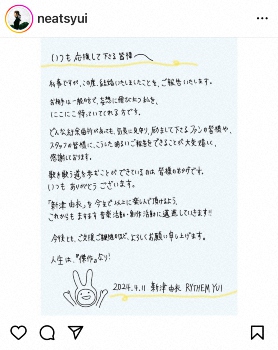 neatsyui
いつも応援して下さる皆様へ
私事ですが、この度、結婚いたしましたことを、ご報告いたします。
お相手は一般の方で、妄想に飛び立つ私を、
にこにこ待っていてくれる方です。
どんな紆余曲折があっても、気長に見守り、励まして下さるファンの皆様や、
スタッフの皆様に、こうしたあるいご報告をできることが大変嬉しく、
感謝しております。
歌を歌う道を歩むことができているのは皆様のおかげです。
いつも ありがとうございます。
「新津由衣」を今まで以上に楽しんで頂けるよう、
これからも ますます 音楽活動・創作活動に邁進していきます!!
今後とも、ご支援ご鞭撻のほど、よろしくお願い申し上げます。
人生は、『傑作』なり!
2024.4.11 新津由衣 RYTHEM YUI